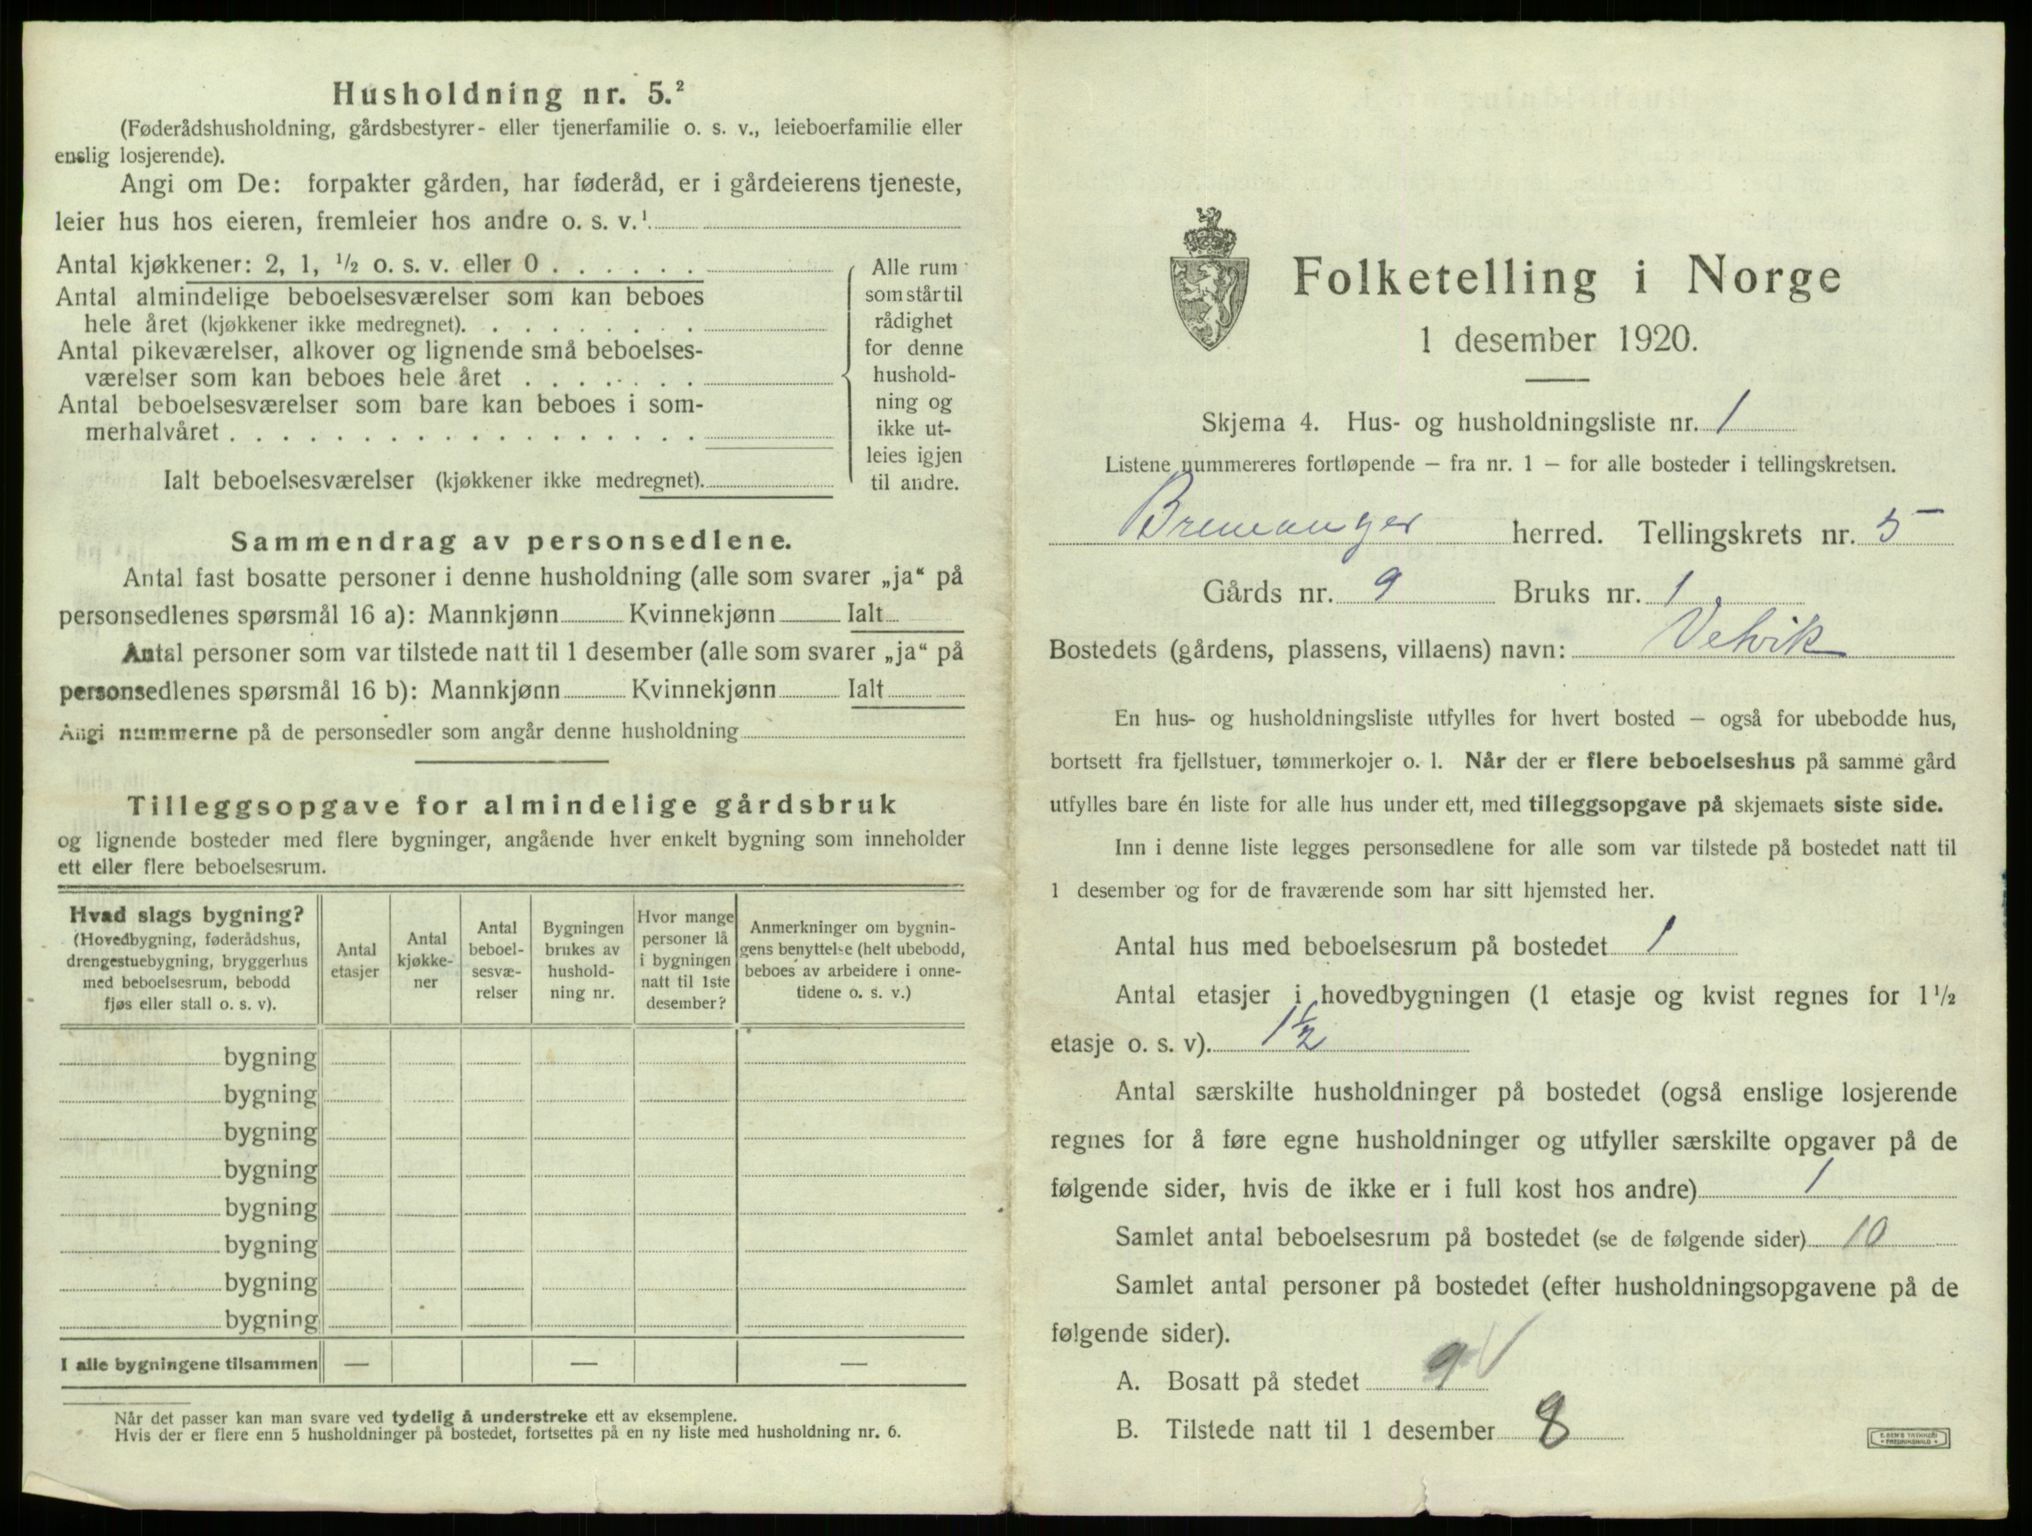 Husholdning nr. 5.²
(Føderådshusholdning, gårdsbestyrer- eller tjenerfamilie o. s. v., leieboerfamilie eller
enslig losjerende).
Angi om De: forpakter gården, har føderåd, er i gårdeierens tjeneste,
leier hus hos eieren, fremleier hos andre o. s. v.¹
Antal kjøkkener: 2, 1, ½ o. s. v. eller 0 . . . . . .
Antal almindelige beboelsesværelser som kan beboes
hele året (kjøkkener ikke medregnet). . . . . . . . .
Antal pikeværelser, alkover og lignende små beboelses-
værelser som kan beboes hele året . . . . . . .
Antal beboelsesværelser som bare kan beboes i som-
merhalvåret . . . . . . . . . . . . . . . . . .
Ialt beboelsesværelser (kjøkkener ikke medregnet).
Alle rum
som står til
rådighet
for denne
hushold-
ning og
ikke ut-
leies igjen
til andre.
Sammendrag av personsedlene.
Antal fast bosatte personer i denne husholdning (alle som svarer „ja“ på
personsedlenes spørsmål 16 a): Mannkjønn Kvinnekjønn Ialt
Antal personer som var tilstede natt til 1 desember (alle som svarer „ja“ på
personsedlenes spørsmål 16 b): Mannkjønn Kvinnekjønn Ialt
Angi nummerne på de personsedler som angår denne husholdning
Tilleggsopgave for almindelige gårdsbruk
og lignende bosteder med flere bygninger, angående hver enkelt bygning som inneholder
ett eller flere beboelsesrum.
Hvad slags bygning?
(Hovedbygning, føderådshus,
drengestuebygning, bryggerhus
med beboelsesrum, bebodd
fjøs eller stall o. s. v).
Antal
etasjer
Antal
kjøkke-
ner
Antal
beboel-
sesvæ-
relser
Bygningen
brukes av
hushold-
ning nr.
Hvor mange
personer lå
i bygningen
natt til 1ste
desember?
Anmerkninger om bygnin-
gens benyttelse (helt ubebodd,
beboes av arbeidere i onne-
tidene o. s. v.)
bygning
bygning
bygning
bygning
bygning
bygning
bygning
bygning
I alle bygningene tilsammen — — —
Når det passer kan man svare ved tydelig å understreke ett av eksemplene.
Hvis der er flere enn 5 husholdninger på bostedet, fortsettes på en ny liste med husholdning nr. 6.
Folketelling i Norge
1 desember 1920.
Skjema 4. Hus- og husholdningsliste nr. 1
Listene nummereres fortløpende – fra nr. 1 – for alle bosteder i tellingskretsen.
Bremanger herred. Tellingskrets nr. 5
Gårds nr. 9 Bruks nr. 1
Bostedets (gårdens, plassens, villaens) navn: Vetvik
En hus- og husholdningsliste utfylles for hvert bosted – også for ubebodde hus,
bortsett fra fjellstuer, tømmerkojer o. l. Når der er flere beboelseshus på samme gård
utfylles bare én liste for alle hus under ett, med tilleggsopgave på skjemaets siste side.
Inn i denne liste legges personsedlene for alle som var tilstede på bostedet natt til
1 desember og for de fraværende som har sitt hjemsted her.
Antal hus med beboelsesrum på bostedet 1
Antal etasjer i hovedbygningen (1 etasje og kvist regnes for 1½
etasje o. s. v). 1½
Antal særskilte husholdninger på bostedet (også enslige losjerende
regnes for å føre egne husholdninger og utfyller særskilte opgaver på de
følgende sider, hvis de ikke er i full kost hos andre) 1
Samlet antal beboelsesrum på bostedet (se de følgende sider) 10
Samlet antal personer på bostedet (efter husholdningsopgavene på de
følgende sider).
A. Bosatt på stedet 9 ✓
B. Tilstede natt til 1 desember 8